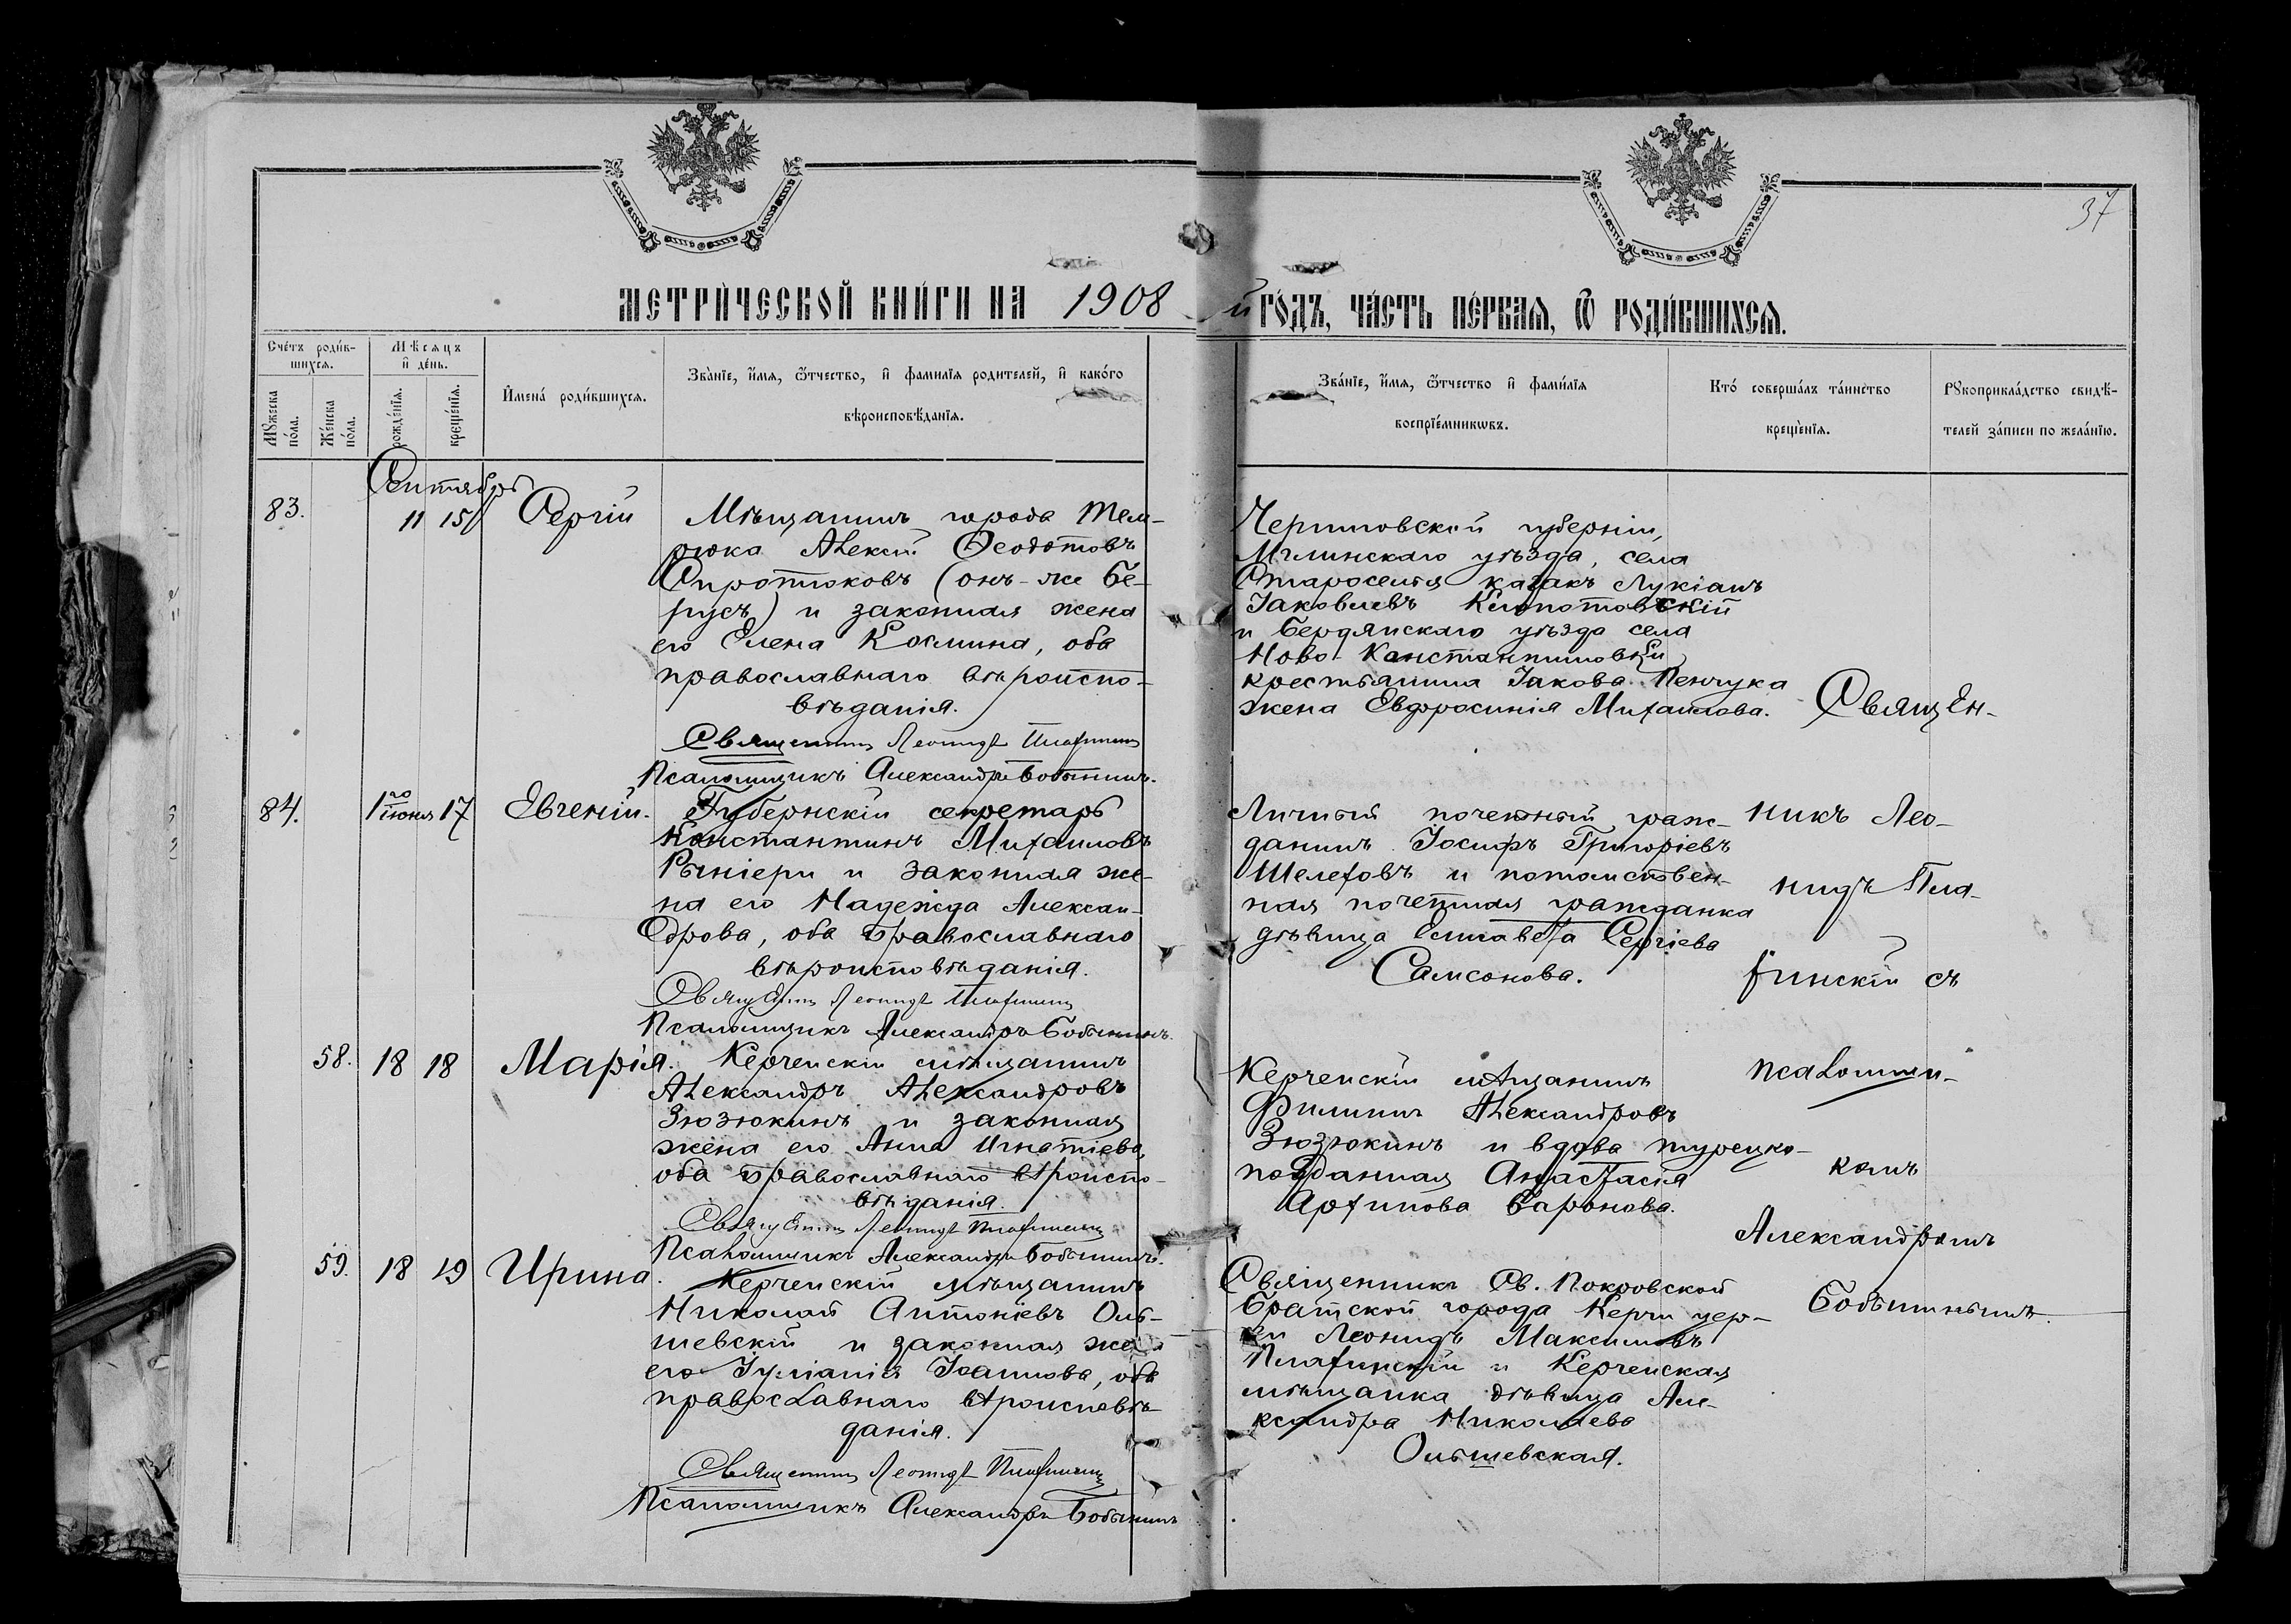 37
МЕТРИ́ЧЕСКОЙ КНИ́ГИ НА 1908 й ГО́ДЪ, ЧА́СТЬ ПЕ́РВАЯ, Ѿ РОДИ́ВШИХСЯ.
Сче́тъ роди́в-
шихся.
Мꙋжеска
по́ла.
Же́нска
по́ла.
Мѣ́сяцъ
и҆ де́нь.
рожде́нїя.
креще́нїя.
И҆мена́ роди́вшихся.
Зва́нїе, и҆́мя, ѻ҆́тчество, и҆ фами́лїя роди́телей, и҆ како́го
вѣроисповѣ́данїя.
Зва́нїе, и҆́мя, ѻ҆́тчество и҆ фами́лїя
воспрїе́мникѡвъ.
Кто́ соверша́лъ та́инство
креще́нїя.
Рꙋкоприкла́дство свидѣ́-
телей за́писи по жела́нїю.
Сентябрь
83.
11 15
Сергій
Мѣщанинъ города Тем-
рюка Алексѣй Ѳеодотовъ
Сиротюковъ (онъ-же Бе-
русъ) и законная жена
его Елена Космина, оба
православнаго вѣроиспо-
вѣданія.
Священникъ Леонидъ Плафинскій
Псаломщикъ Александръ Бобынинъ.
Черниговской губерніи,
Мглинскаго уѣзда, села
Староселья казакъ Лукіанъ
Іаковлевъ Клопотовскій
и Бердянскаго уѣзда села
Ново-Константиновки
крестьянина Іакова Пенчука
жена Евфросинія Михаилова.
84.
1го іюня 17
Евгеній.
Губернскій секретарь
Константинъ Михаиловъ
Раніери и законная же-
на его Надежда Алексан-
дрова, оба православнаго
вѣроисповѣданія.
Священникъ Леонидъ Плафинскій
Псаломщикъ Александръ Бобынинъ.
Личный почетный граж-
данинъ Іосифъ Григоріевъ
Шелеховъ и потомствен-
ная почетная гражданка
дѣвица Елисавета Сергіева
Самсонова.
58.
18 18
Марія.
Керченскій мѣщанинъ
Александръ Александровъ
Зюзюкинъ и законная
жена его Анна Игнатіева,
оба православнаго вѣроиспо-
вѣданія.
Священникъ Леонидъ Плафинскій
Псаломщикъ Александръ Бобынинъ.
Керченскій мѣщанинъ
Филиппъ Александровъ
Зюзюкинъ и вдова турецко-
подданная Анастасія
Баронова.
59.
18 19
Ирина.
Керченскій мѣщанинъ
Николай Антоніевъ Оль-
шевскій и законная жена
его Іуліанія Іоаннова, оба
православнаго вѣроисповѣ-
данія.
Священникъ Леонидъ Плафинскій
Псаломщикъ Александръ Бобынинъ
Священникъ Св. Покровской
Братской города Керчи цер-
кви Леонидъ Максимовъ
Плафинскій и Керченская
мѣщанка дѣвица Але-
ксандра Николаева
Ольшевская.
Священ-
никъ Лео-
нидъ Пла-
финскій съ
псаломщи-
комъ
Александромъ
Бобынинымъ.